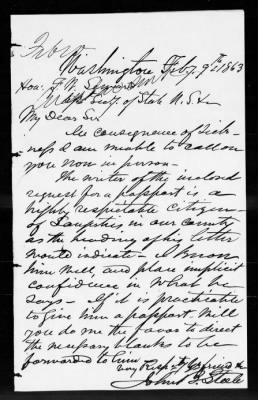 Washington Feby. 9th 1863
Hon: F. W. Seward
Asst Secy. of State U.S.
My Dear Sir
In consequence of Sick-
ness I am unable to call on
you now in person—
The writer of the inclosed
request for a passport is a
highly respectable citizen
of in our County
as the heading of his letter
would indicate— I know
him well, and place implicit
confidence in what he
says— If it is practicable
to give him a passport, will
you do me the favor to direct
the necessary blanks to be
forwarded to him
Very Respt. Yr friend &c
John B. Steele